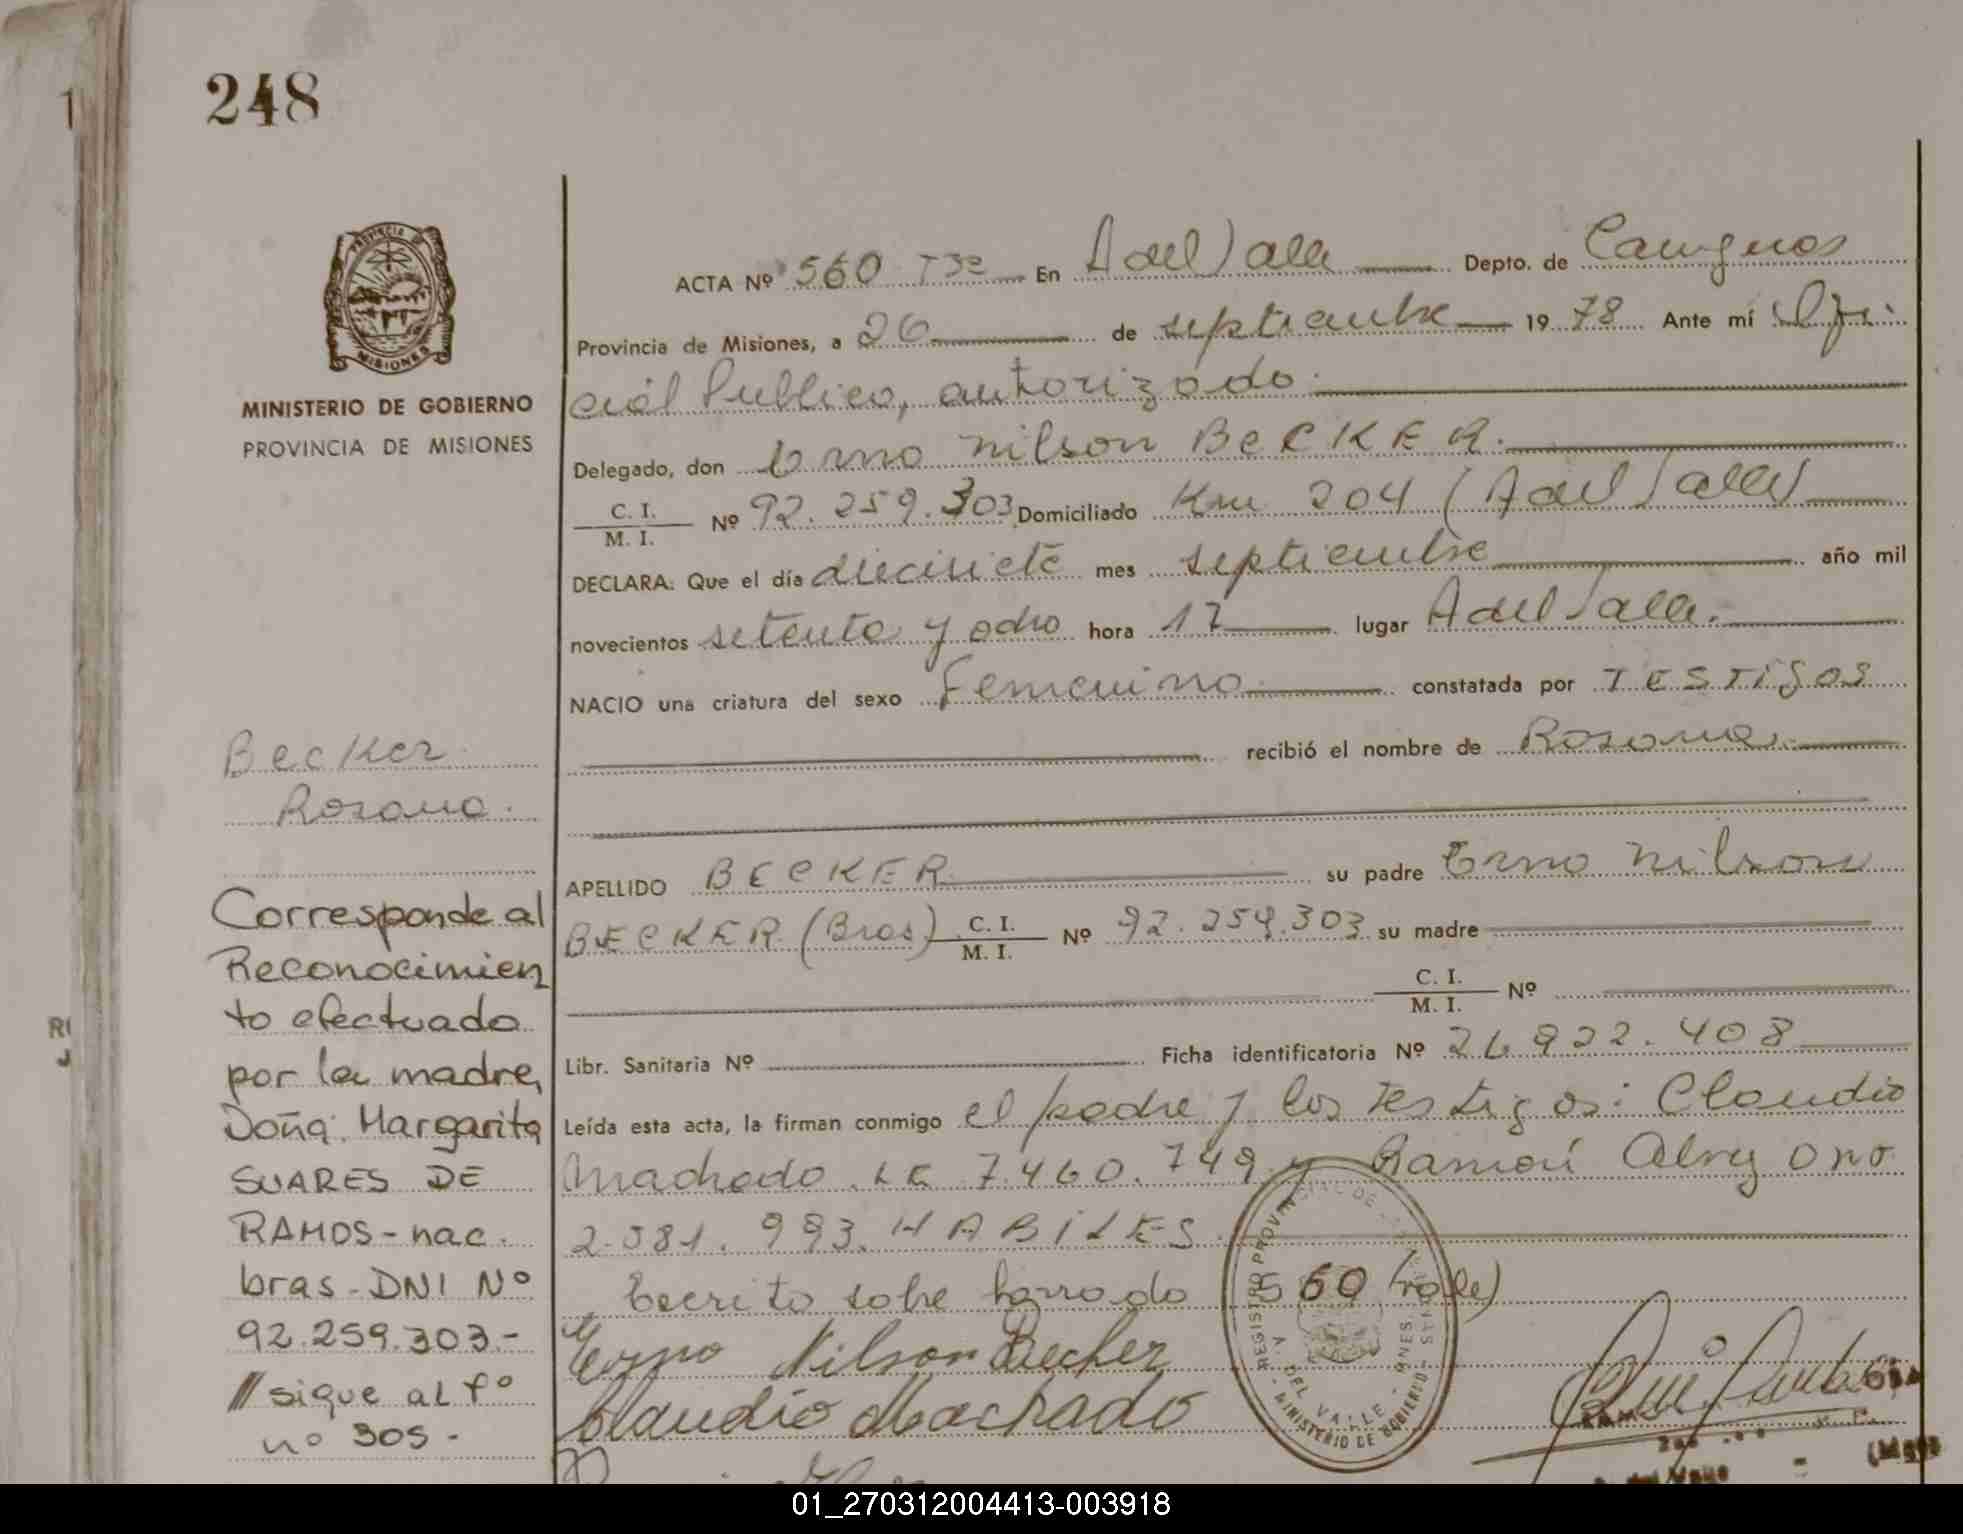 248
MINISTERIO DE GOBIERNO
PROVINCIA DE MISIONES
ACTA Nº 560 T3º En A del Valle Depto. de Cainguas
Provincia de Misiones, a 26 de septiembre 19 78 Ante mí Ofi-
cial Publico, autorizado.
Delegado, don Erno Nilson BECKER.
C. I. / M. I. Nº 92.259.303 Domiciliado Km 204 (A del Valle)
DECLARA: Que el día diecisiete mes septiembre año mil
novecientos setenta y ocho hora 17 lugar A del Valle.
NACIO una criatura del sexo Femenino constatada por TESTIGOS
recibió el nombre de Rosana.
APELLIDO BECKER su padre Erno Nilson
BECKER (Bras) C. I. / M. I. Nº 92.259.303 su madre
C. I. / M. I. Nº
Libr. Sanitaria Nº Ficha identificatoria Nº 26.922.408
Leída esta acta, la firman conmigo el padre y los testigos: Claudio
Machado LE 7.460.749 y Ramón
2.581.993. HABILES.
Escrito sobre borrado 560 (vale)
Erno Nilson Becker
Claudio Machado
Becker
Rosana.
Corresponde al
Reconocimien
to efectuado
por la madre,
Doña: Margarita
SUARES DE
RAMOS - nac.
bras - DNI Nº
92.259.303.-
// sigue al fº
nº 305.-
REGISTRO PROVINCIAL DE
A. DEL VALLE - MNES.
MINISTERIO DE GOBIERNO
01_270312004413-003918